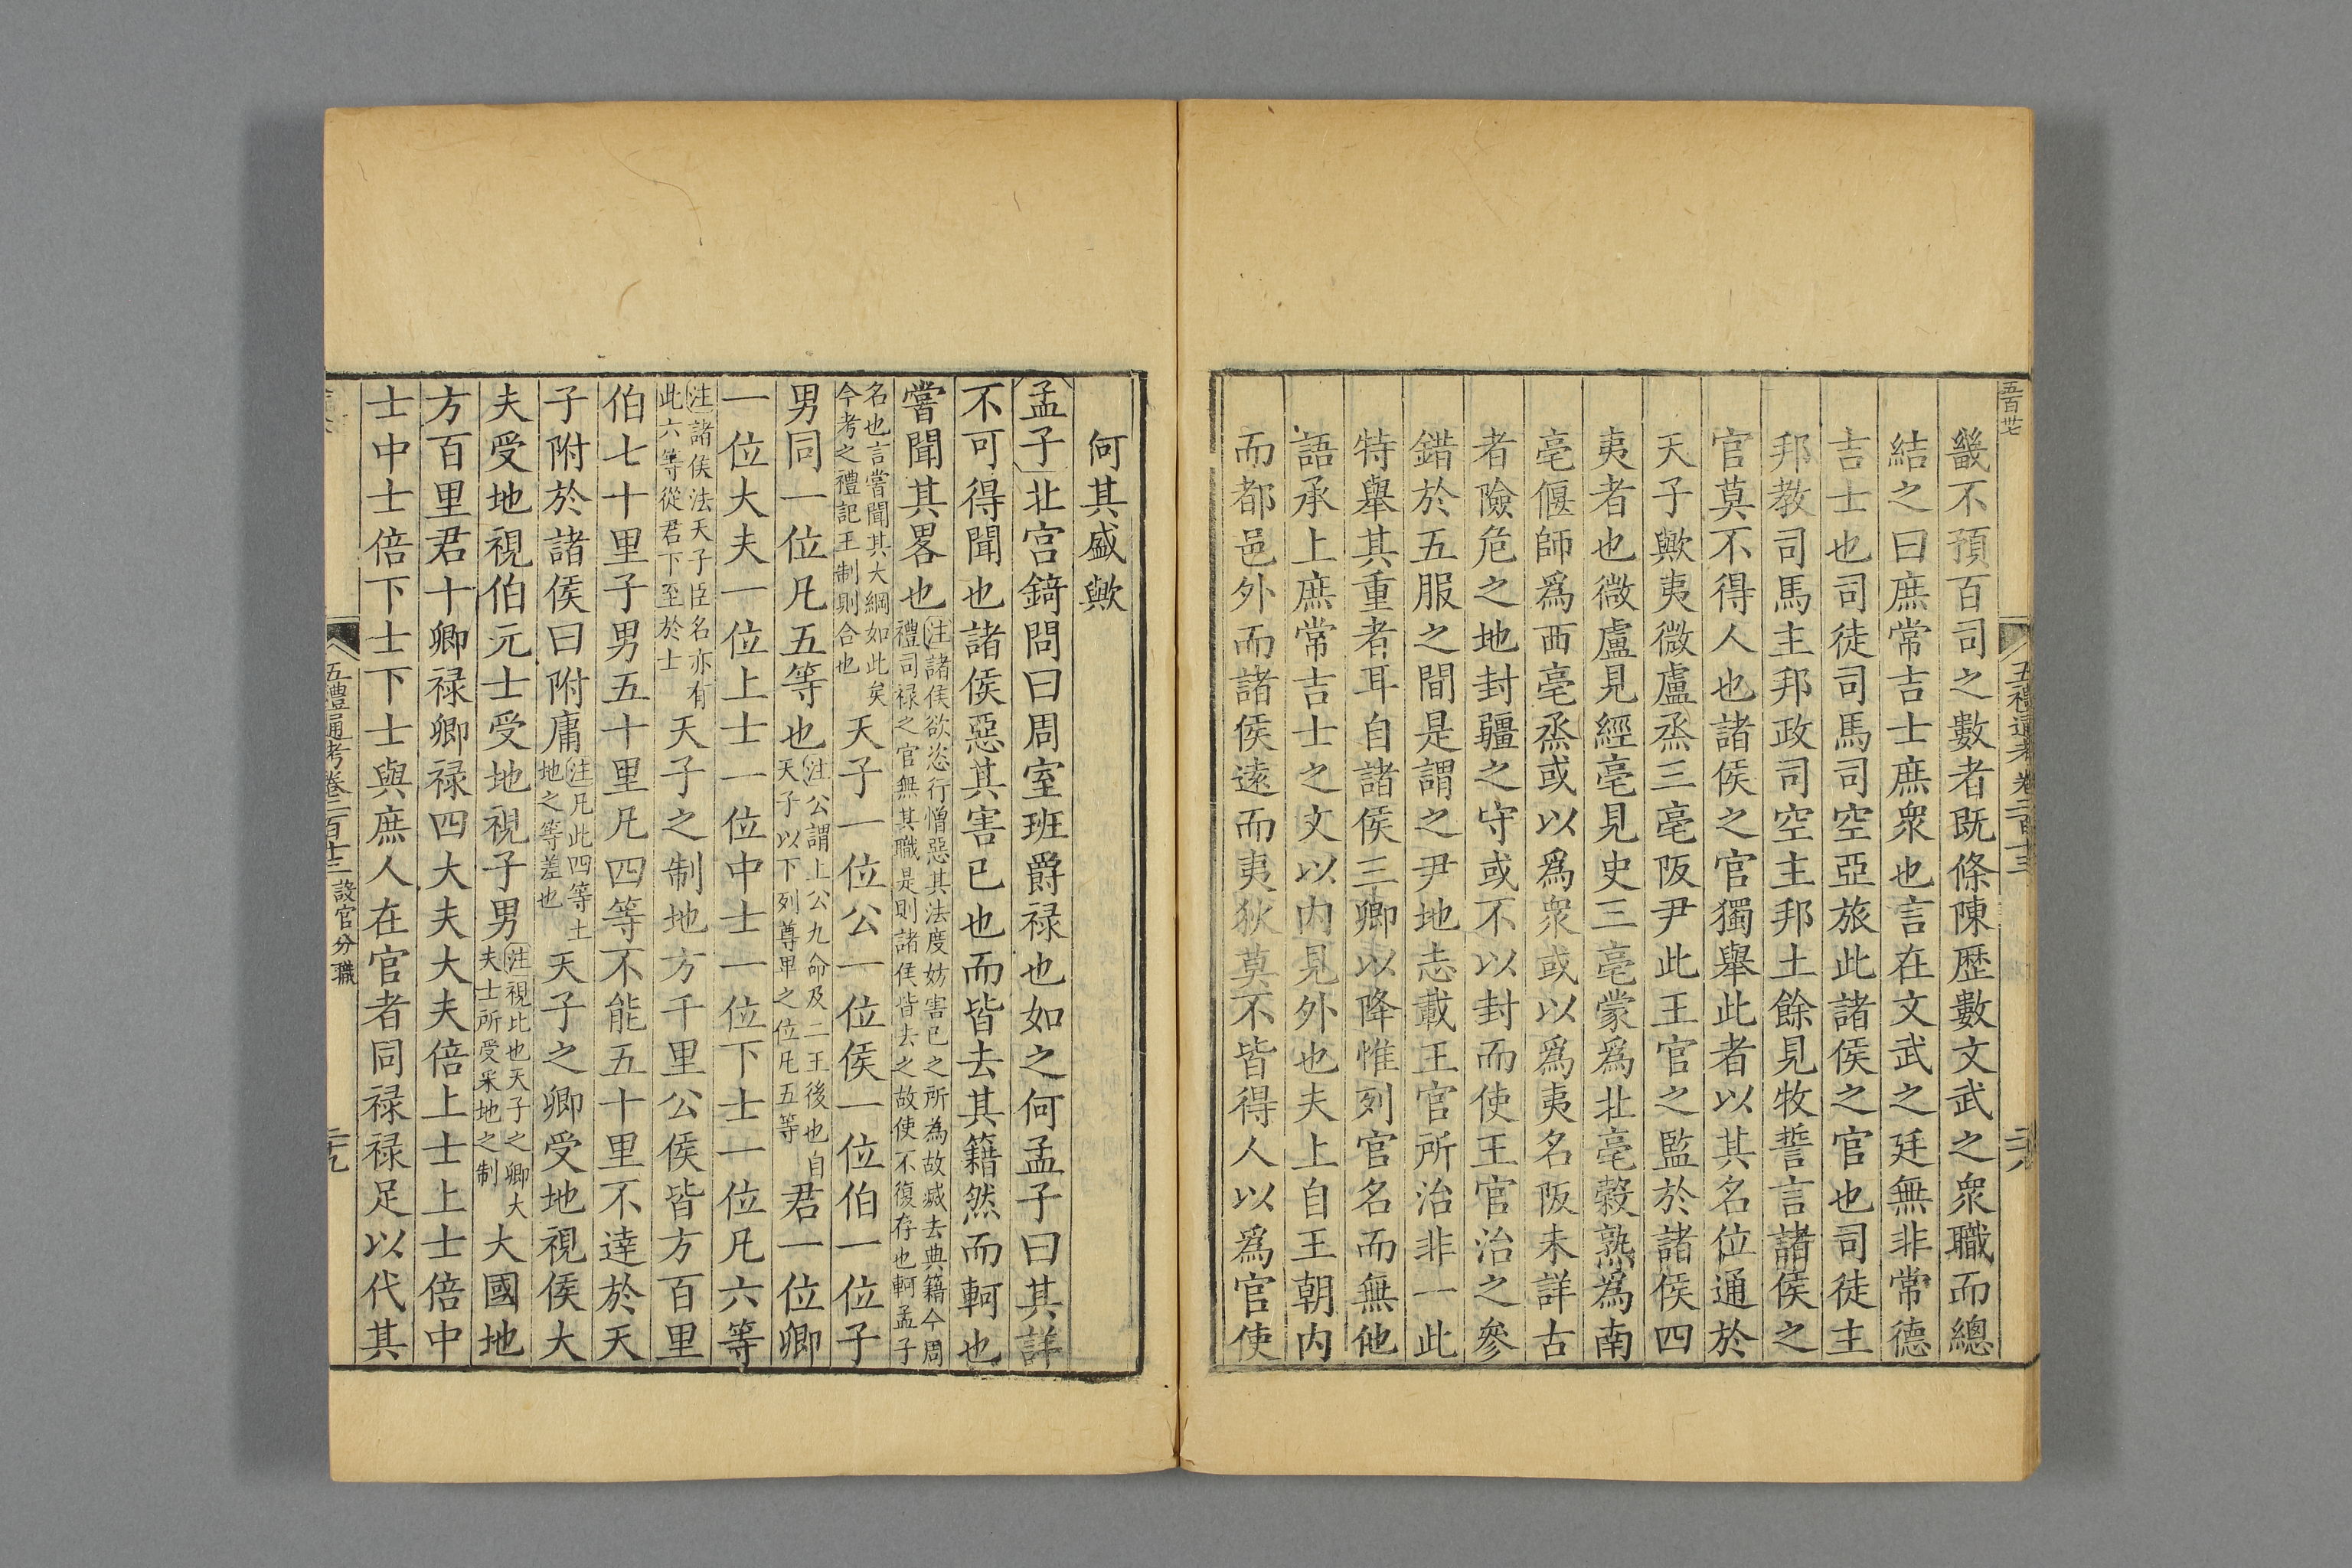 五百卅
五禮通考卷二百十三
二八
畿不預百司之數者既條陳歷數文武之衆職而總
結之曰庶常吉士庶衆也言在文武之廷無非常德
吉士也司徒司馬司空亞旅此諸侯之官也司徒主
邦教司馬主邦政司空主邦土餘見牧誓言諸侯之
官莫不得人也諸侯之官獨舉此者以其名位通於
天子歟夷微盧烝三亳阪尹此王官之監於諸侯四
夷者也微盧見經亳見史三亳蒙爲北亳穀熟爲南
亳偃師爲西亳烝或以爲衆或以爲夷名阪未詳古
者險危之地封疆之守或不以封而使王官治之參
錯於五服之間是謂之尹地志載王官所治非一此
特舉其重者耳自諸侯三卿以降惟列官名而無他
語承上庶常吉士之文以内見外也夫上自王朝内
而都邑外而諸侯遠而夷狄莫不皆得人以爲官使
何其盛歟
孟子北宫錡問曰周室班爵禄也如之何孟子曰其詳
不可得聞也諸侯惡其害已也而皆去其籍然而軻也
嘗聞其畧也注諸侯欲恣行憎惡其法度妨害已之所為故滅去典籍今周
禮司禄之官無其職是則諸侯皆去之故使不復存也軻孟子
名也言嘗聞其大綱如此矣
今考之禮記王制則合也天子一位公一位侯一位伯一位子
男同一位凡五等也注公謂上公九命及二王後也自
天子以下列尊卑之位凡五等君一位卿
一位大夫一位上士一位中士一位下士一位凡六等
注諸侯法天子臣名亦有
此六等從君下至於士天子之制地方千里公侯皆方百里
伯七十里子男五十里凡四等不能五十里不達於天
子附於諸侯曰附庸注凡此四等土
地之等差也天子之卿受地視侯大
夫受地視伯元士受地視子男注視比也天子之卿大
夫士所受采地之制大國地
方百里君十卿禄卿禄四大夫大夫倍上士上士倍中
士中士倍下士下士與庶人在官者同禄禄足以代其
五禮通考卷二百十三 設官分職
二九